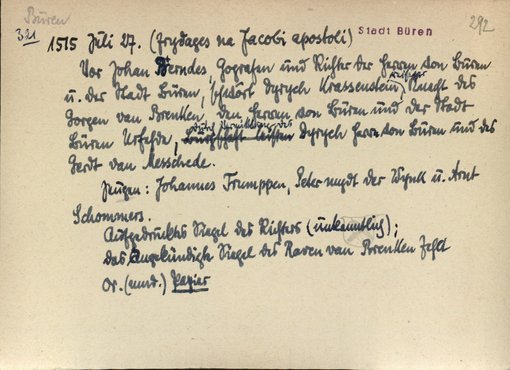 Büren
321
292
1515 Juli 27. (frydages na Jacobi apostoli)
Stadt Büren
Vor Johan Berndes, Gografen und Richter der Herren von Büren
u. der Stadt Büren, schwört Dyrych Krassenstein, Knecht des
Gorgen van Brenken, den Herren von Büren und der Stadt
Büren Urfehde, Bürgschaft leisten Dyrych Herr von Büren und des
Gerdt van Messchede.
Zeugen: Johannes Trumppen, Peter mydt der Wynk u. Arnt
Schommers.
Aufgedrücktes Siegel des Richters (unkenntlich);
das angekündigte Siegel des Raven van Brenken fehlt
Or. (mnd.) Papier